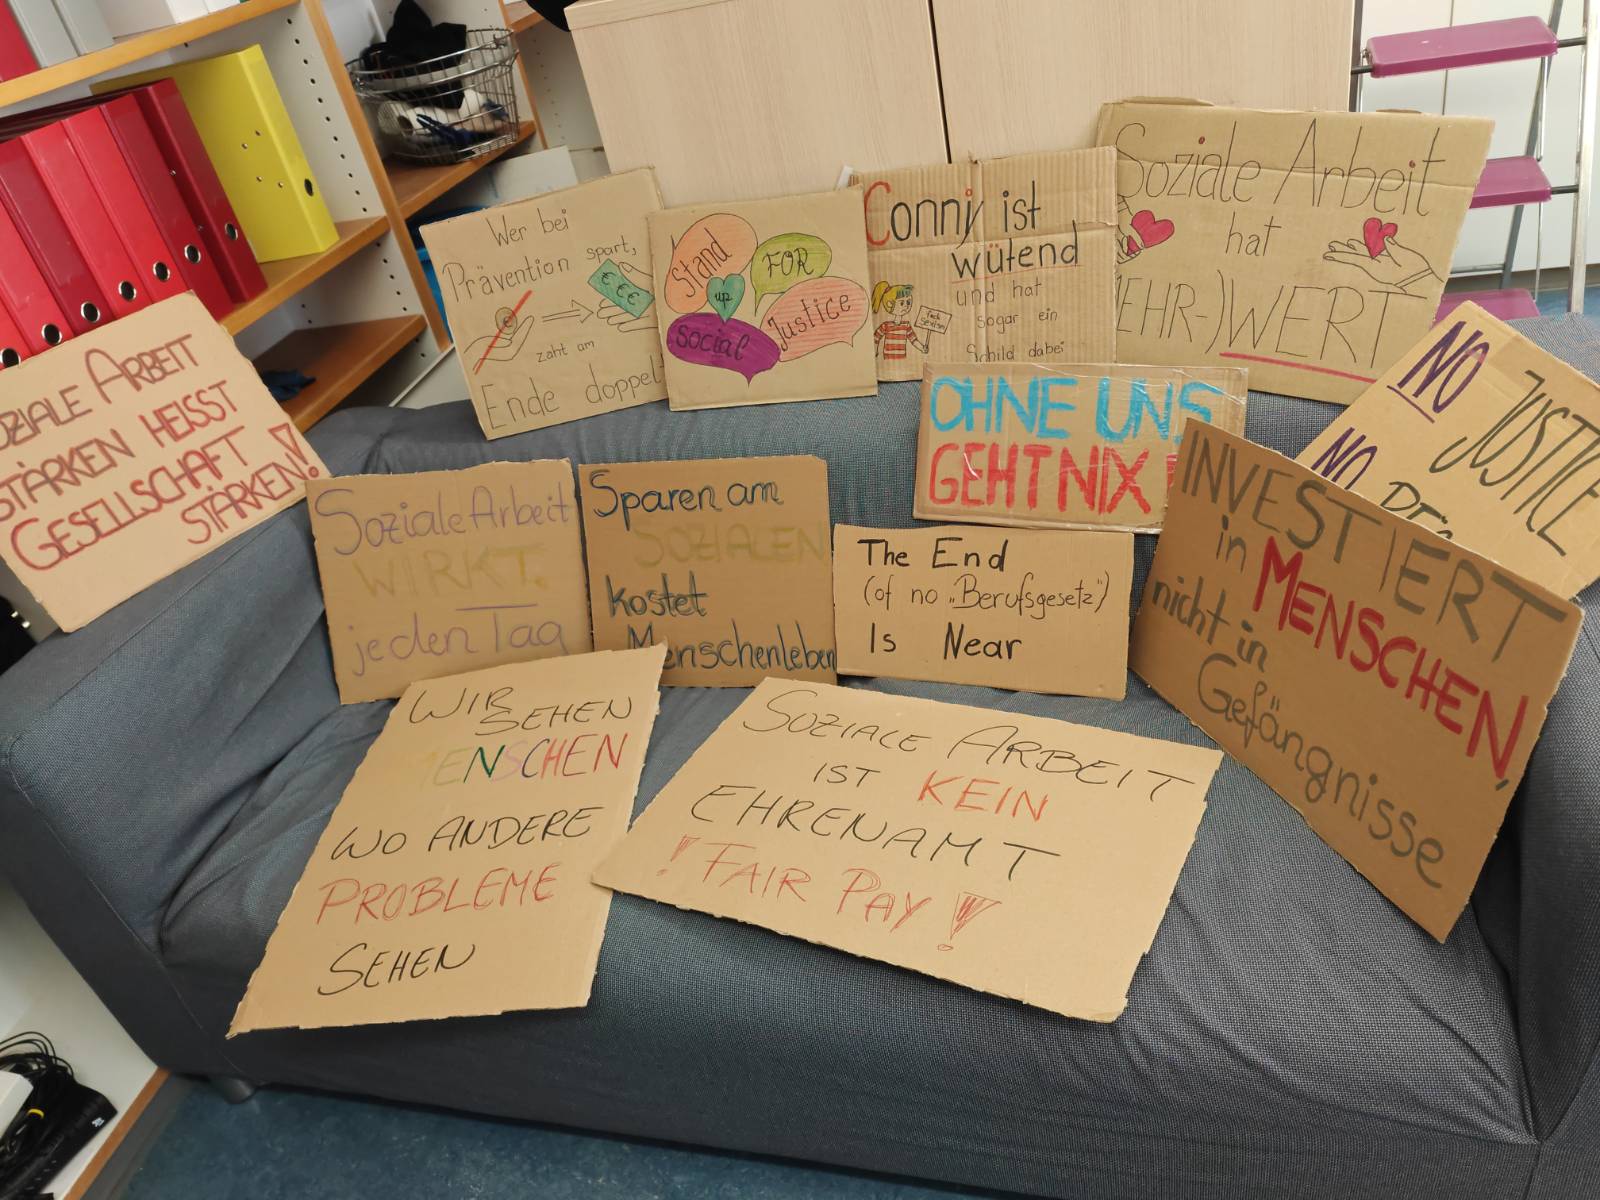 Wer bei
Prävention spart,
€
€€€
zahlt am
Ende doppelt
Stand
up
FOR
Social
Justice
Conny ist
wütend
und hat
sogar ein
Schild dabei
Soziale Arbeit
hat
EHR-)WERT
SOZIALE ARBEIT
STÄRKEN HEISST
GESELLSCHAFT
STÄRKEN!
OHNE UNS
GEHT NIX
NO JUSTICE
NO
Soziale Arbeit
WIRKT.
jeden Tag
Sparen am
SOZIALEN
kostet
Menschenleben
The End
(of no „Berufsgesetz")
Is Near
INVESTIERT
in MENSCHEN,
nicht in
Gefängnisse
WIR
SEHEN
MENSCHEN
WO ANDERE
PROBLEME
SEHEN
SOZIALE ARBEIT
IST KEIN
EHRENAMT
! FAIR PAY !